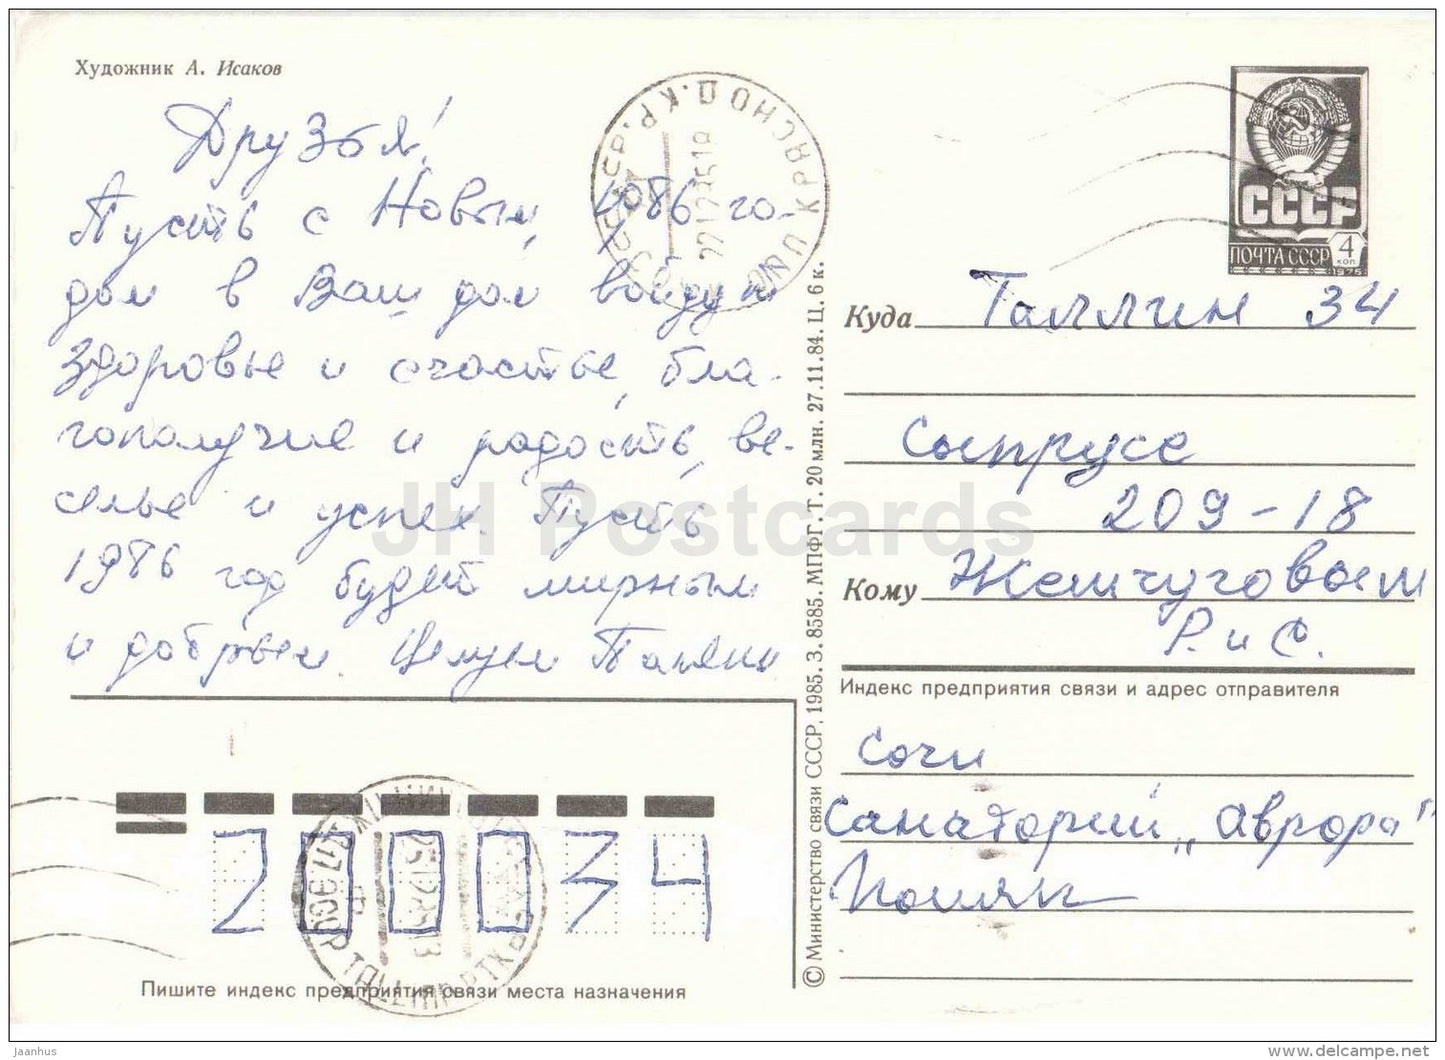 Художник А. Исаков
Друзья!
Пусть с Новым, 1986 го-
дом в Ваш дом войдут
здоровье и счастье, бла-
гополучие и радость, ве-
селье и успех. Пусть
1986 год будет мирным
и добрым. Целуем
СССР
ПОЧТА СССР 4 коп
1976
Куда Таллин 34
Сыпрусе
209-18
Кому Жемчуговым
Р. и С.
Индекс предприятия связи и адрес отправителя
Сочи
Санаторий „Аврора"
200034
Пишите индекс предприятия связи места назначения
© Министерство связи СССР. 1985. З. 8585. МПФГ. Т. 20 млн. 27.11.84. Ц. 6 к.
JH Postcards
jaanhus
delcampe.net